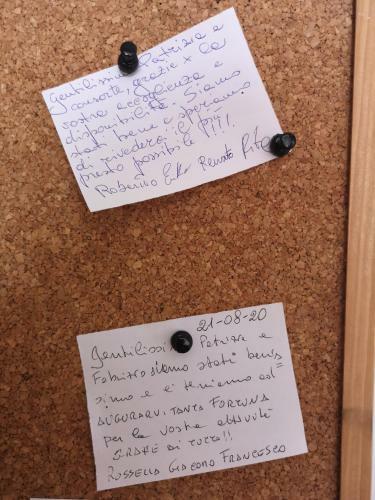 Gentilissimi Patrizia e
consorte, grazie x la
vostra accoglienza e
disponibilità. Siamo
stati bene e speriamo
di rivederci il più
presto possibile !!!!
Roberto Erika Renato Rita
21-08-20
Gentilissi Patrizia e
Fabrizio siamo stati benis
simo e ci teniamo ad=
AUGURARVI TANTA FORTUNA
per la vostra attività
GRAZIE di tutto!!
ROSSELLA GIACOMO FRANCESCO